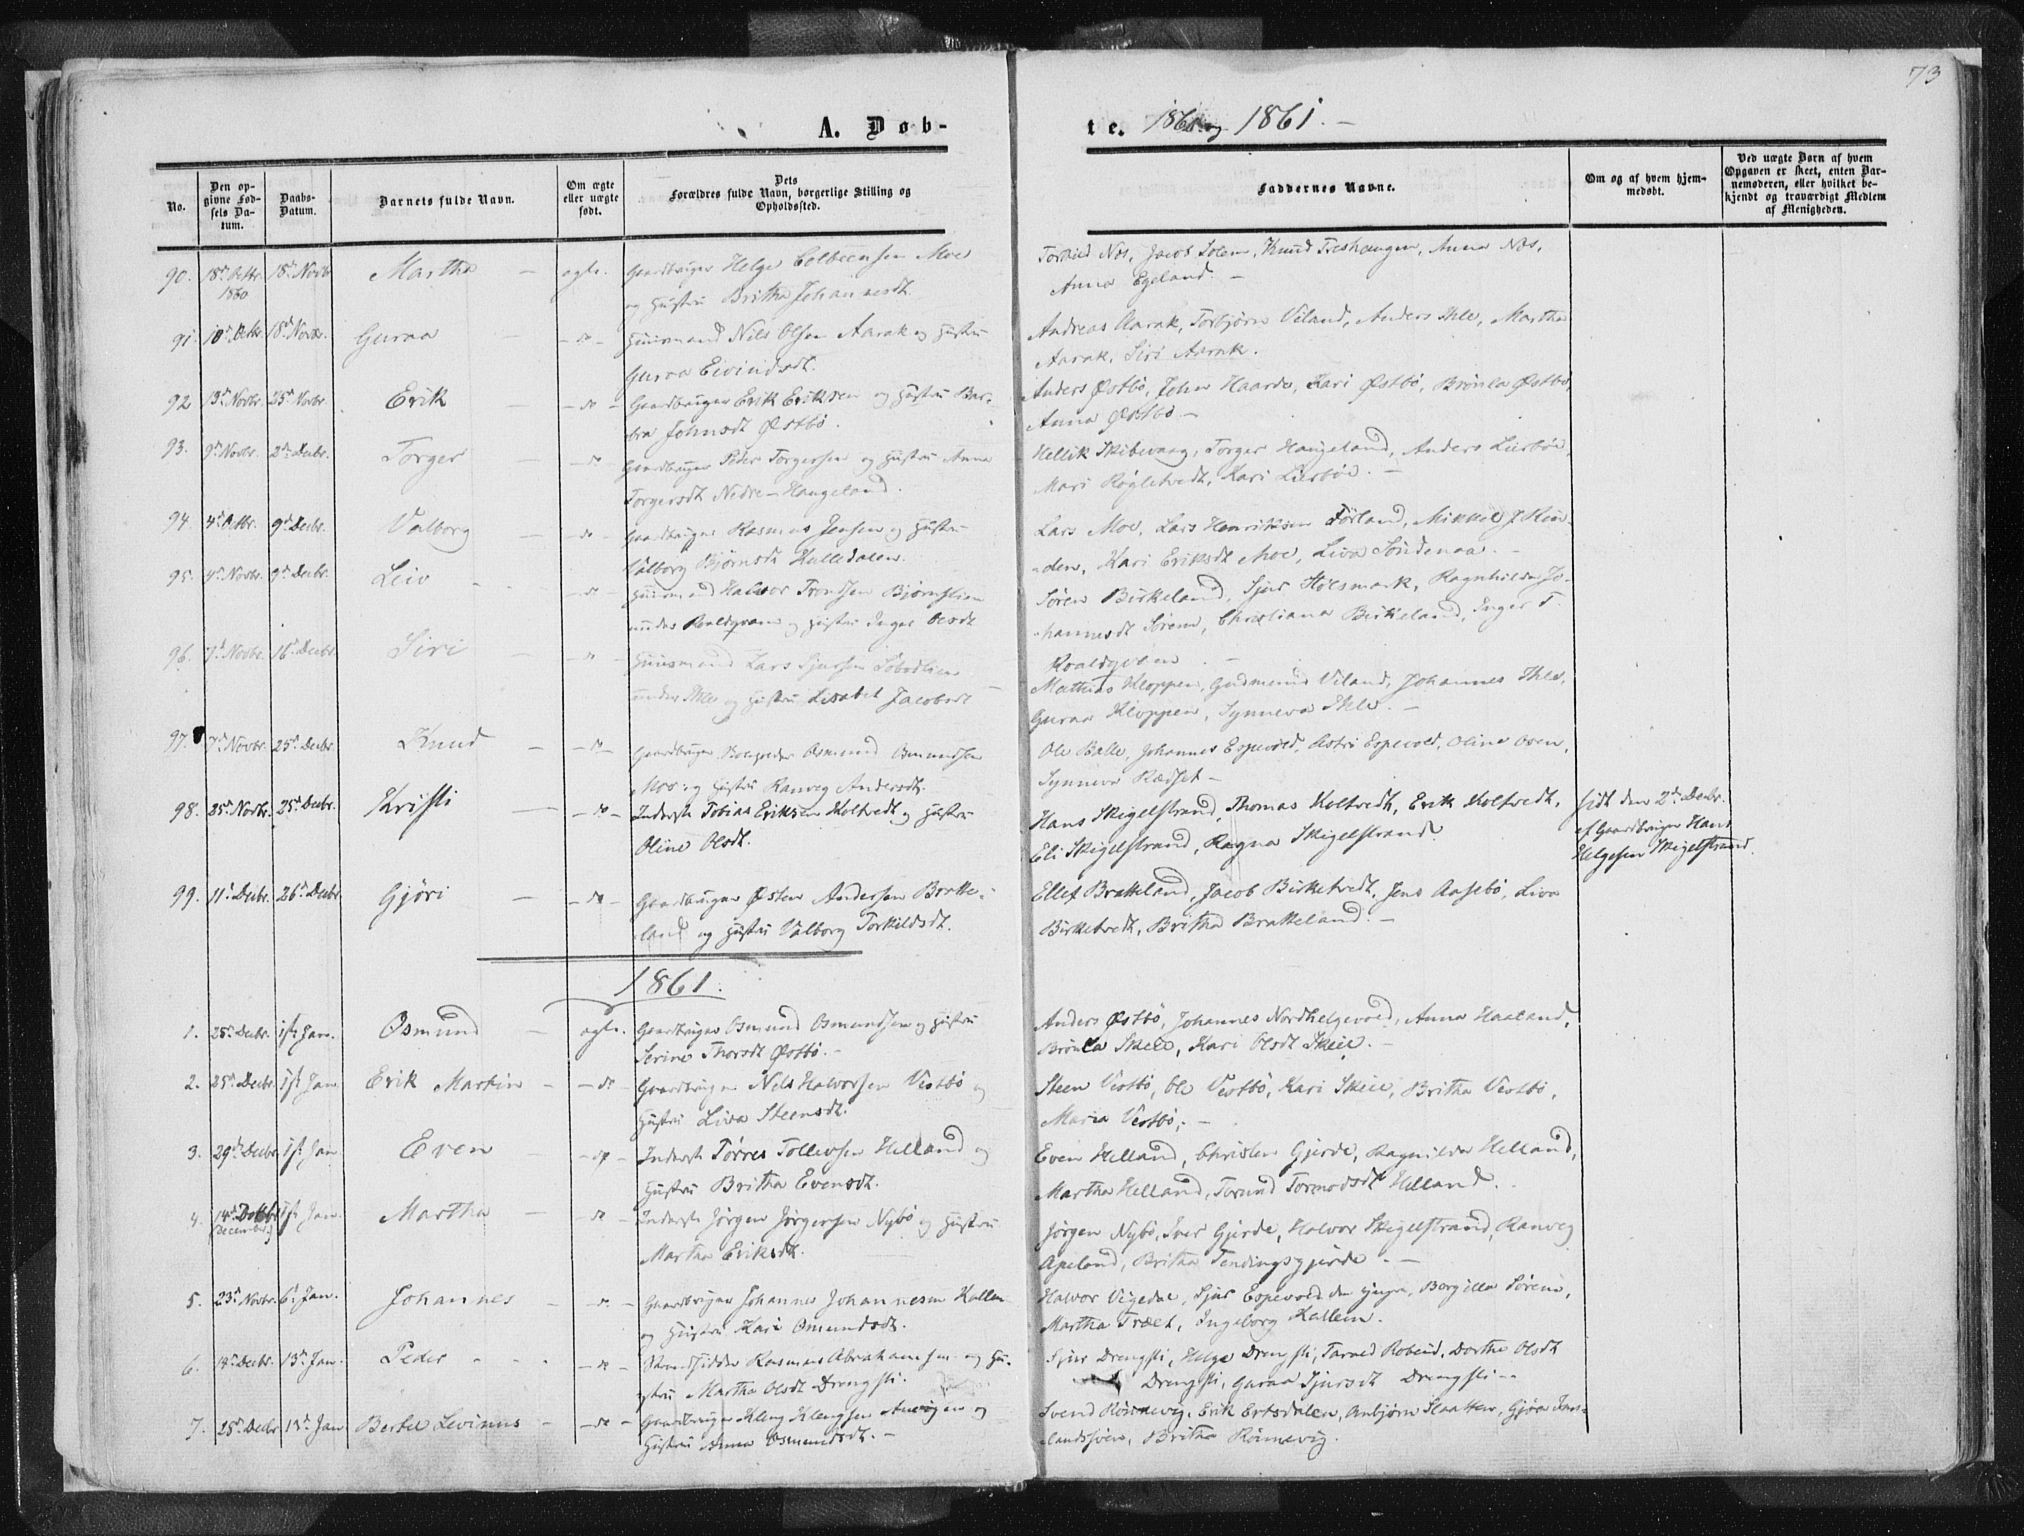 73
A. Døb-
te. 1860 og 1861. -
No.
Den op-
givne Fød-
sels Da-
tum.
Daabs-
Datum.
Barnets fulde Navn.
Om ægte
eller uægte
født.
Dets
Forældres fulde Navn, borgerlige Stilling og
Opholdssted.
Faddernes Navne.
Om og af hvem hjem-
medøbt.
Ved uægte Børn af hvem
Opgaven er skeet, enten Bar-
nemoderen, eller hvilket be-
kjendt og troværdigt Medlem
af Menigheden.
90. 18d Octbr. 18d Novbr Martha - ægte. Gaardbruger Helge Colbeensen Moe
1860 og Hustru Britha Johannesdt.
Torkild Næs, Jacob Solem, Knud Treshaugen, Anna Næs,
Anna Egeland. -
91. 10d Octbr. 18d Novbr. Guraa - - do - Huusmand Nils Olsen Aarak og Hustru
Guraa Eivindsdt.
Andreas Aarak, Torbjørn Viland, Anders Ihle, Martha
Aarak, Siri Aarak.
92 13d Novbr. 25d Novbr. Erik - - do - Gaardbruger Erik Eriksen og Hustru Bar-
bra Johnsdt Østbø.
Anders Østbø, John Haarde, Kari Østbø, Brønla Østbø,
Anna Østbø -
93. 9d Novbr. 2den Decbr. Torger - - do Gaardbruger Peder Torgersen og Hustru Anna
Torgersdt Nedre-Haugeland.
Hellik Skibevaag, Torger Haugeland, Anders Lierbøe,
Mari Røgletvedt, Kari Lierbøe. -
94. 4d Octbr. 9d Decbr. Valborg - - do - Gaardbruger Rasmus Jensen og Hustru
Valborg Bjørnsdt Halledalen.
Lars Moe, Lars Henriksen Førland, Mikkel
den, Kari Eriksdt Moe, Liva Søndenaa. -
95. 4d Novbr. 9d Decbr. Leiv - - - do - Huusmand Halvor Trondsen Bjørnslien
under Roaldqvam og Hustru Inger Olsdt
Søren Birkeland, Sjur Holsmark, Ragnhilda Jo-
hannesdt Sørem, Christiana Birkeland, Inger T.
Roaldqvam. -
96. 7d Novbr. 16d Decbr. Siri - - do - Huusmand Lars Sjursen
under Ihle og Hustru Lisabet Jacobsdt
Mathias Kloppen, Gudmund Viland, Johannes Ihle,
Guraa Kloppen, Synneva Ihle. -
97. 7d Novbr. 25d Decbr. Knud - - do - Gaardbruger Osmund Osmundsen
Moe og Hustru Ranveg Andersdt.
Ole Balle, Johannes Espevold, Astri Espevold, Oline Osen,
Synneva Rædset -
98. 25d Novbr. 25d Decbr. Kristi - - do - Inderste Tobias Eriksen Holtvedt og Hustru
Oline Olsdt.
Hans Skigelstrand, Thomas Holtvedt, Erik Holtvedt,
Eli Skigelstrand, Ragna Skigelstrand
hjdt den 2den Decbr.
af Gaardbruger Hans
Helgesen Skigelstrand.
99. 11d Decbr. 26d Decbr. Gjøri - - do - Gaardbruger Østen Andersen Bratte-
land og Hustru Valborg Torkildsdt.
Ellef Bratteland, Jacob Birketvedt, Jens Aasebø, Liva
Birketvedt, Britha Bratteland. -
1861.
1. 25d Decbr. 1st Jan. Osmund - ægte. Gaardbruger Osmund Osmundsen og Hustru
Serine Thorsdt Østbø. -
Anders Østbø, Johannes Nordhelgevold, Anna Haaland,
Brønla Skeie, Kari Olsdt Skeie. -
2. 25d Decbr. 1st Jan Erik Martin - - do - Gaardbruger Nils Halvorsen Vestbø og
Hustru Liva Steensdt.
Steen Vestbø, Ole Vestbø, Kari Skeie, Britha Vestbø,
Maria Vestbø. -
3. 29d Decbr 1st Jan Even - - do - Inderste Tørres Tollevsen Helland og
Hustru Britha Evensdt.
Even Helland, Christen Gjerde, Ragnilda Helland,
Martha Helland, Torund Tormodsdt Helland.
4. 14d 1st Jan Martha - - do - Inderste Jørgen Jørgensen Nybø og Hustru
(December) Martha Eriksdt.
Jørgen Nybø, Iver Gjerde, Halvor Skigelstrand, Ranveg
Apeland, Britha Tendingsgjerde. -
5. 23d Novbr. 6d Jan. Johannes - - do - Gaardbruger Johannes Johannesen Hallem
og Hustru Kari Osmundsdt.
Halvor Vigedal, Sjur Espevold den yngre, Bergilla Sørem,
Martha Træet, Ingeborg Hallem.
6. 14d Decbr. 13d Jan. Peder - - - - do - Strandsidder Rasmus Abrahamsen og Hu-
stru Martha Olsdt Drengsti.
Sjur Drengsti, Helge Drengsti, Tarald Robeid, Dorthe Olsdt
Drengsti, Guraa Sjursdt Drengsti -
7. 25d Decbr 13d Jan Bertel Levinus - - do - Gaardbruger Kleng Klengsen og
Hustru Anna Osmundsdt. -
Svend Rønnevig, Erik Ertsdalen, Anbjørn Slaatten, Gjøa
landssøen, Britha Rønnevig.